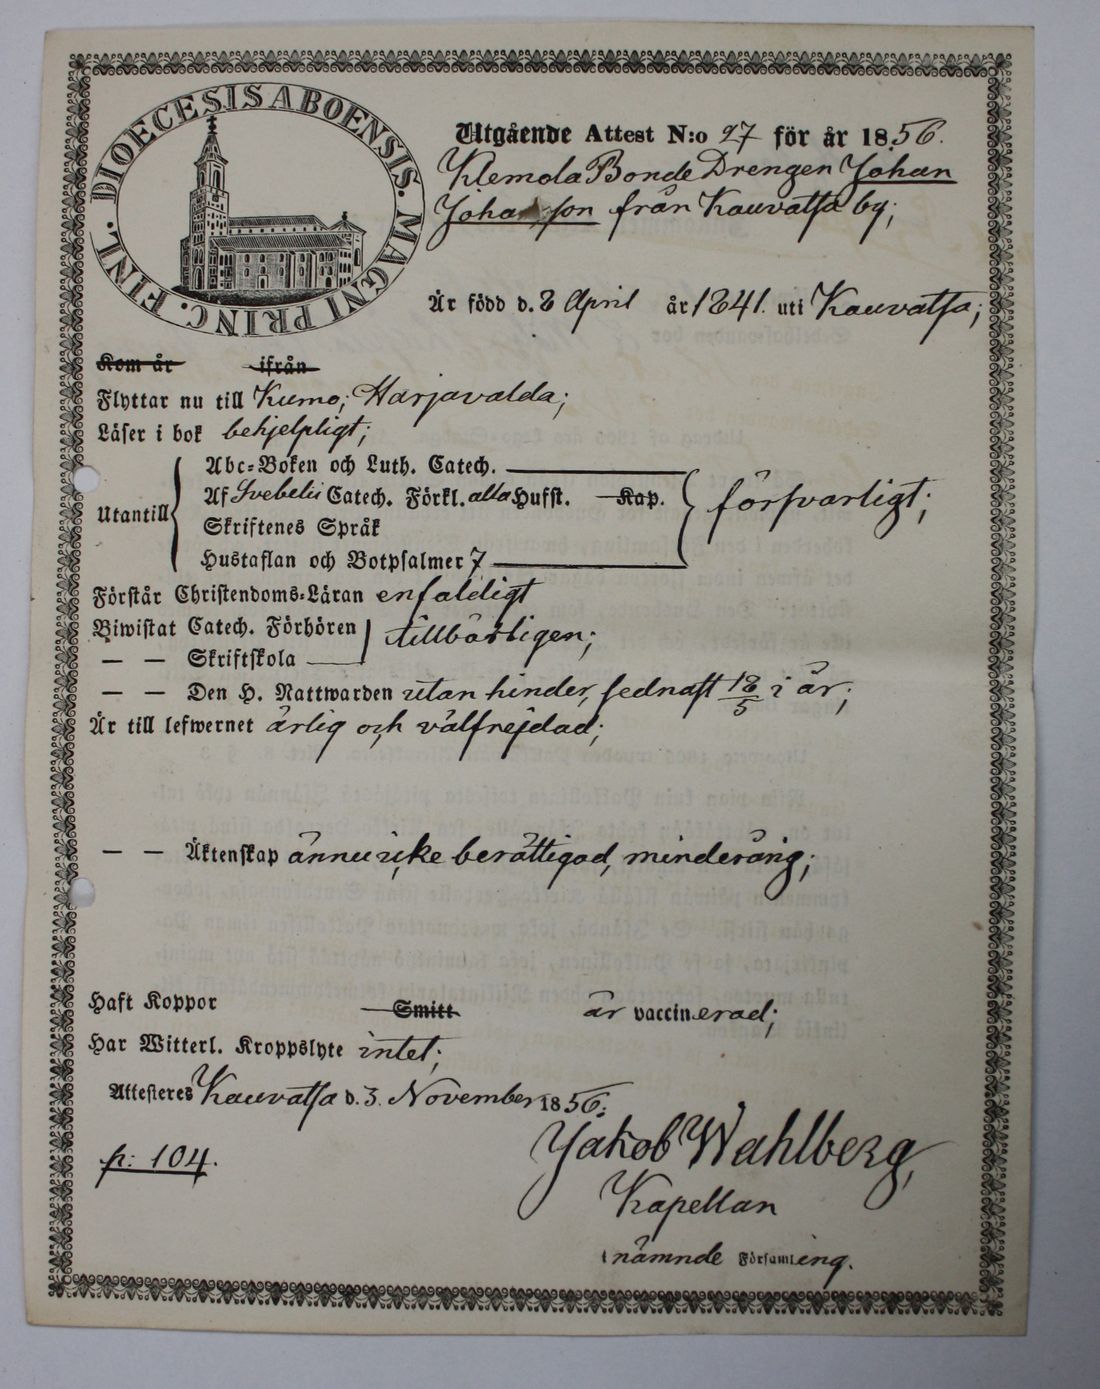 DIOECESIS ABOENSIS. MAGNI PRINC. FINL.
Utgående Attest N:o 27 för år 1856.
Klemola Bonde Drengen Johan
Johansson från Kauvatsa by;
Är född d. 8 April år 1841. uti Kauvatsa;
Kom år ifrån
Flyttar nu till Kumo; Harjavalda;
Läser i bok behjelpligt;
Abc-Boken och Luth. Catech.
Utantill Af Svebelii Catech. Förkl. alla Hufst. Kap. försvarligt;
Skriftenes Språk
Hustaflan och Botpsalmer 7
Förstår Christendoms-Läran enfaldigt
Biwistat Catech. Förhören tillbörligen;
— — Skriftskola
— — Den H. Nattwarden utan hinder, sednast 18/5 i år;
Är till lefwernet ärlig och välfrejdad;
— — Äktenskap ännu icke berättigad, minderårig;
Haft Koppor Smitt är vaccinerad;
Har Witterl. Kroppslyte intet;
Attesteres Kauvatsa d. 3. November 1856:
Jakob Wahlberg,
p: 104.
Kapellan
i nämnde Församling.